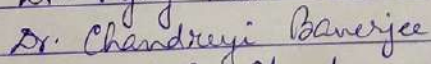 Dr. Chandreyi Banerjee